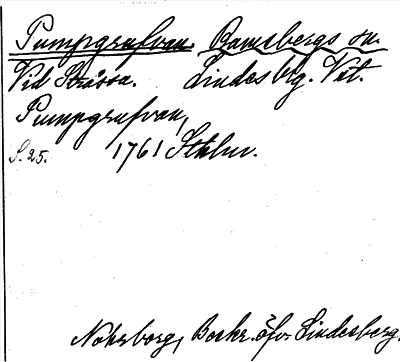 Pumpgrufvan. Ramsbergs sn.
Vid Stråssa. Lindesbg. Vst.
Pumpgrufvan,
S. 25. 1761 Sthlm.
Nohrborg, Beskr. öfv. Lindesberg.